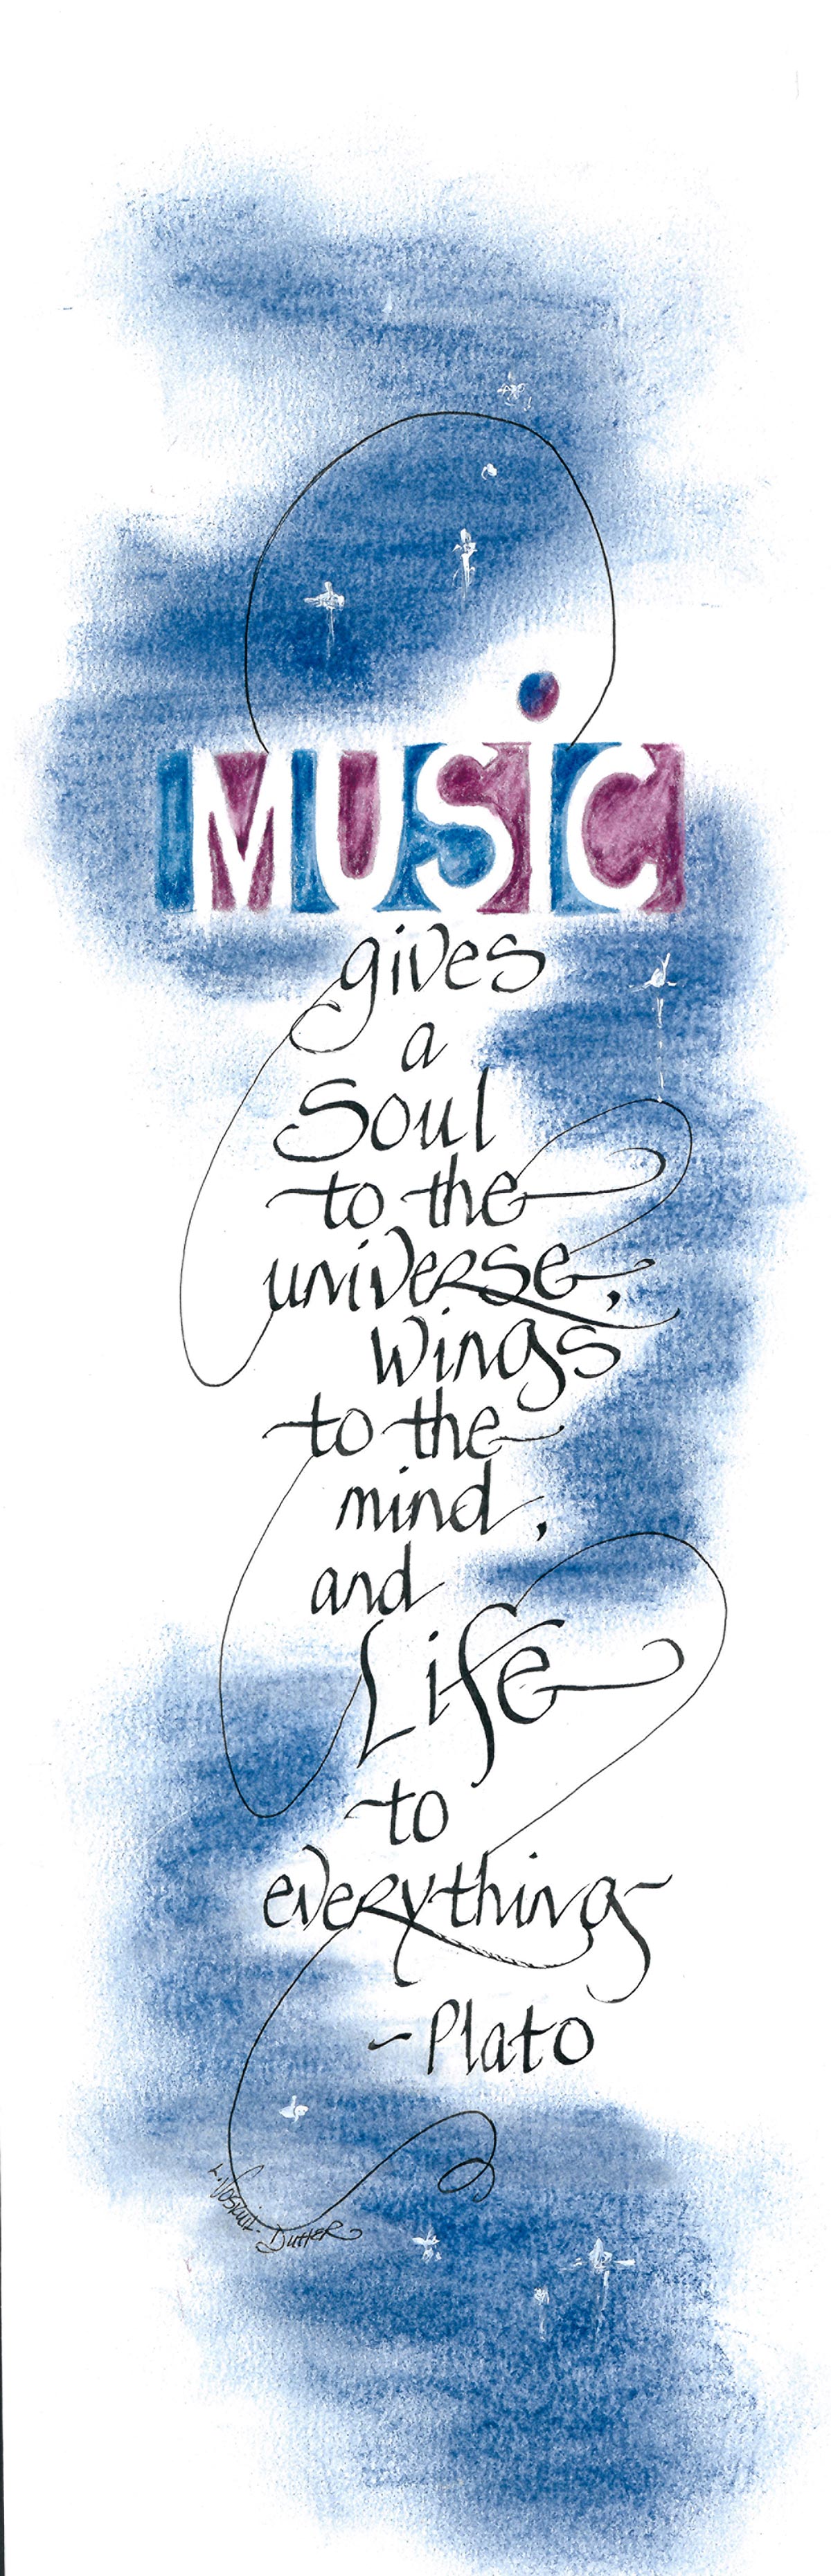 MUSiC
gives
a
Soul
to the
universe,
Wings
to the
mind,
and
Life
to
everything-
-Plato
L. Voskuil-Dutter